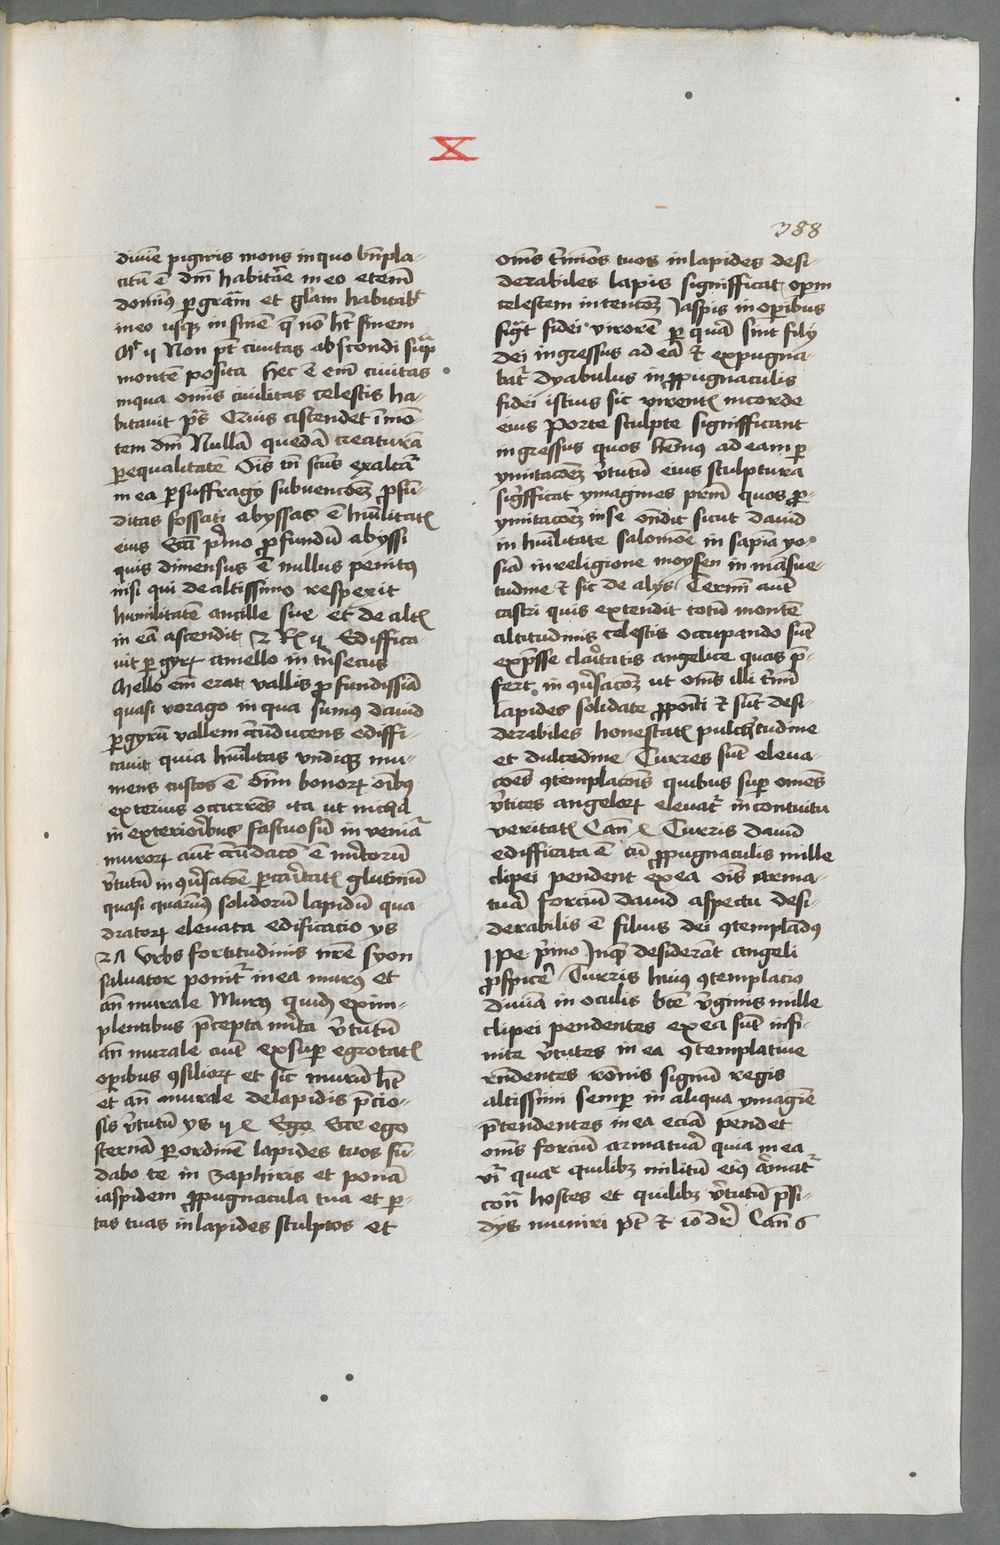 X
388
diuīe pigwis mons in quo bn̄pla-
citū ē dm̄ habitāe in eo etem̄
domin9 p gr̄am et gl̄am habitab̄t
in eo usq3 in finē q̄ nō ht̄ finem
Mt̄ ij Non pt̄ ciuitas abscondi suꝑ
montē posita Hec ē em̄ ciuitas
in qua om̄is ciuilitas celestis ha-
bitauit ps̄ Quis ascendet ī mō-
tem dm̄ Nullā quedā creaturā
ꝑ equalitatē Ois tn̄ scūs exaltā
in ea ꝑ suffragij subuencōez ꝓfū-
ditas fossati abyssas ē hūilitatꝭ
eius Ecc̄i pͥmo ꝓfundū abyssi
quis dimensus ē nullus penit9
nisi qui de altissimo respexit
humilitatē ancille sue et de altꝭ
in eā ascendit 2 Rꝭ ij Ediffica-
uit ꝑ gyrꝝ amello in tn̄secus
Mello em̄ erat vallis ꝓfundissiā
quasi vorago in qua sum9 dauid
ꝑ gyrū vallem circūducens ediffi-
cauit quia hūilitas vndiq3 mu-
mens custos ē oīm bonorꝝ oībus
exterius occurrēs ita ut nichil
in exteriorībus fastuosū inueniāt
murorꝝ aūt circūdacō ē mītorum
v̄tutū in 9ūsacōe ꝑ caritatꝭ glutinū
quasi quarūd9 solidorū lapidū qua-
dratorꝝ eleuata edificacio ys
21 Vrbs fortitudinis nr̄e syon
saluator ponit̄ in ea mur9 et
an̄ murale Mur9 quid9 exim-
plentibus p̄cepta mīta v̄tutū
an̄ murale aūt exsuꝑ egrotatꝭ
oꝑibus 9siliorꝝ et sic murū ht̄
et an̄ murale de lapidis p̄cio-
sis v̄tutū ys ij x Ego Ecce ego
sternā ꝑ ordinē lapides tuos fū-
dabo te in zaphiris et ponā
iaspidem ꝓpugnacula tua et por-
tas tuas in lapides sculptos et
om̄s t̄mios tuos in lapides desi-
derabiles lapis signifficat oꝑm
celestem intentōez Jaspis in oꝑibus
figāt fidei virorē ꝑ quā sunt filij
dei ingressus ad eā & expugna-
bat̄ dyabulus in ꝓpugnaculis
fidei istius sic virentꝭ in corde
eius Porte sculpte signifficant
ingressus quos hem9 ad eam ꝑ
ymitacōez v̄tutū eius sculptura
signifficat ymagines prīm quos ꝑ
ymitacōez in se on̄dit sicut dauid
in hūilitate salomōe in sapīa yo-
siā in religione moysen in māsue-
tudine & sic de alijs Termī aūt
castri quis extendit totū montē
altitudinis celestis occupando sūt
exp̄sse claritatis angelice quas p̄-
fert in 9ūsacōez ut om̄s illi t̄mī
lapides solidate ꝓponti & sūt desi-
derabiles honestatꝭ pulchritudine
et dulcedine Turres sūt eleua-
cōes 9templacōis quibus suꝑ omēs
v̄tices angelorꝝ eleuat̄ in contuitu
veritatꝭ Can̄ x Turris dauid
edifficata ē cū ꝓpugnaculis mille
clipei pendent ex ea ois arma-
tura forciū dauid aspectu desi-
derabilis ē filius dei 9templād9
j pe pͥmo Jnq̄ desiderāt angeli
ꝓspicere Turris huius 9templacio
diuīa in oculis bt̄e v̄ginis mille
clipei pendentes ex ea sūt infi-
nite v̄tutes in ea 9templatiue
rn̄dentes rōnis signū regis
altissimi semꝑ in aliqua ymagīe
p̄tendentes in ea eciā pendet
om̄s forciū armatura quia in ea
vī quar quilibz militū ei9 armat̄
cont̄ hostes et quilibz v̄tutū p̄si-
dijs muniri pt̄ & iō dr̄ Can̄ 6